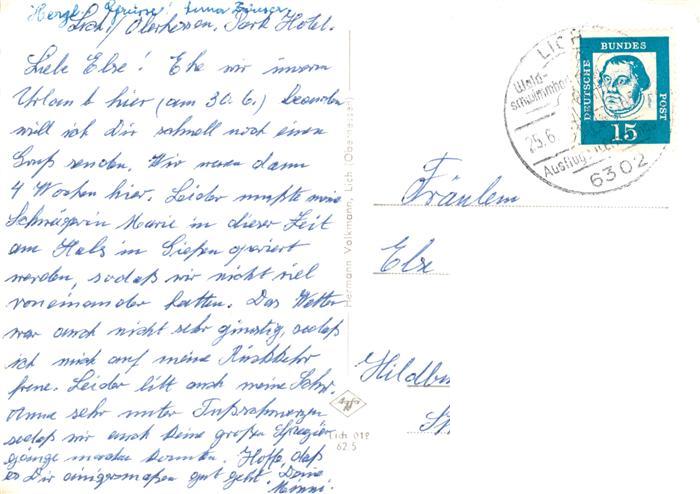 Herzl. Grüsse!
Lich/Oberhessen, Park Hotel.
Liebe Else! Ehe wir unseren
Urlaub hier (am 30.6.) beenden
will ich Dir schnell noch einen
Gruß senden. Wir waren dann
4 Wochen hier. Leider mußte meine
Schwägerin Marie in dieser Zeit
am Hals in Gießen operiert
werden, sodaß wir nicht viel
voneinander hatten. Das Wetter
war auch nicht sehr günstig, sodaß
ich mich auf meine Rückkehr
freue. Leider litt auch meine Schw.
Anna sehr unter Fußschmerzen
sodaß wir auch keine großen Spazier
gänge machen konnten. Hoffe, daß
es Dir einigermaßen gut geht. Deine
Minni.
Hermann Volkmann, Lich (Oberhessen)
Lich 018
62 5
LICH
Wald-
schwimmbad
25.6.
Ausflug
6302
DEUTSCHE
BUNDES
POST
15
Fräulein
Else
Hildbu
St